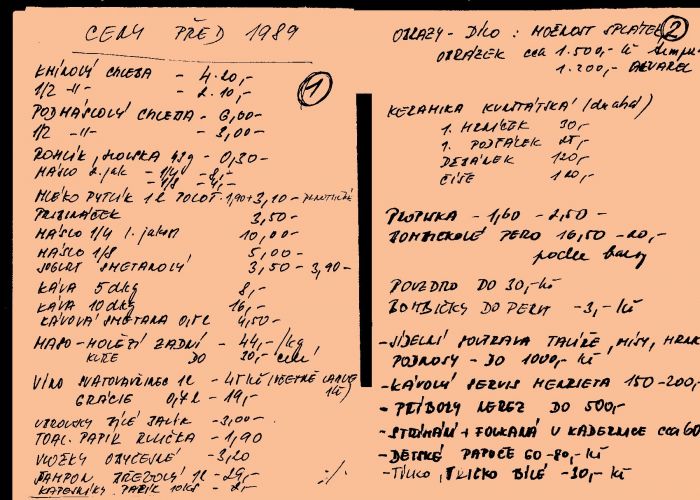 CENY PŘED 1989
1
KMÍNOVÝ CHLEBA - 4.20,-
1/2 -"- - 2.10,-
PODMÁSLOVÝ CHLEBA - 6,00-
1/2 -"- - 3,00-
ROHLÍK, HOUSKA 43g - 0,30-
MÁSLO 2. jak - 1/4 - 8,-
- 1/8 - 4,-
MLÉKO PYTLÍK 1L POLOT. 1,90 + 3,10 -
PRIBINÁČEK 3,50-
MÁSLO 1/4 1. jakost 10,00-
MÁSLO 1/8 5,00-
JOGURT SMETANOVÝ 3,50 - 3,90-
KÁVA 5 dkg 8,-
KÁVA 10 dkg 16,-
KÁVOVÁ SMETANA 4,50-
MASO - HOVĚZÍ ZADNÍ - 44,-/kg
KUŘE DO 20,- celé
VÍNO SVATOVAVŘINEC 1L - 45 Kč (VČETNĚ LAHVE
GRÁCIE 0,7L - 19,- 1Kč)
BÍLÉ - 3,00-
TOAL. PAPÍR RULIČKA - 1,90
VLOŽKY OBYČEJNÉ - 3,20
ŠAMPON BŘEZOVÝ 1L - 29,-
KAPESNÍKY PAPÍR 10KS - 2,-
·/·
2
OBRAZY - DÍLO : MOŽNOST SPLÁTEK
OBRÁZEK cca 1.500,- Kč tempera
1.200,- AKVAREL
KERAMIKA KUNŠTÁTSKÁ (drahá)
1. HRNÍČEK 30,-
1. PODŠÁLEK 25,-
DŽBÁNEK 120,-
ČÍŠE 120,-
PROPISKA - 1,60 - 2,50 -
BOMBIČKOVÉ PERO 16,50 - 20,-
podle barvy
POUZDRO DO 30,- Kč
BOMBIČKY DO PERA - 3,- Kč
- JÍDELNÍ SOUPRAVA TALÍŘE, MÍSY, HRNK
PODNOSY - DO 1000,- Kč
- KÁVOVÝ SERVIS HENRIETA 150 - 200,-
- PŘÍBORY NEREZ DO 500,-
- STŘÍHÁNÍ + FOUKANÁ U KADEŘNICE cca 60
- DĚTSKÉ PAPUČE 60 - 80,- Kč
- TÍLKO, TRIČKO BÍLÉ - 30,- Kč